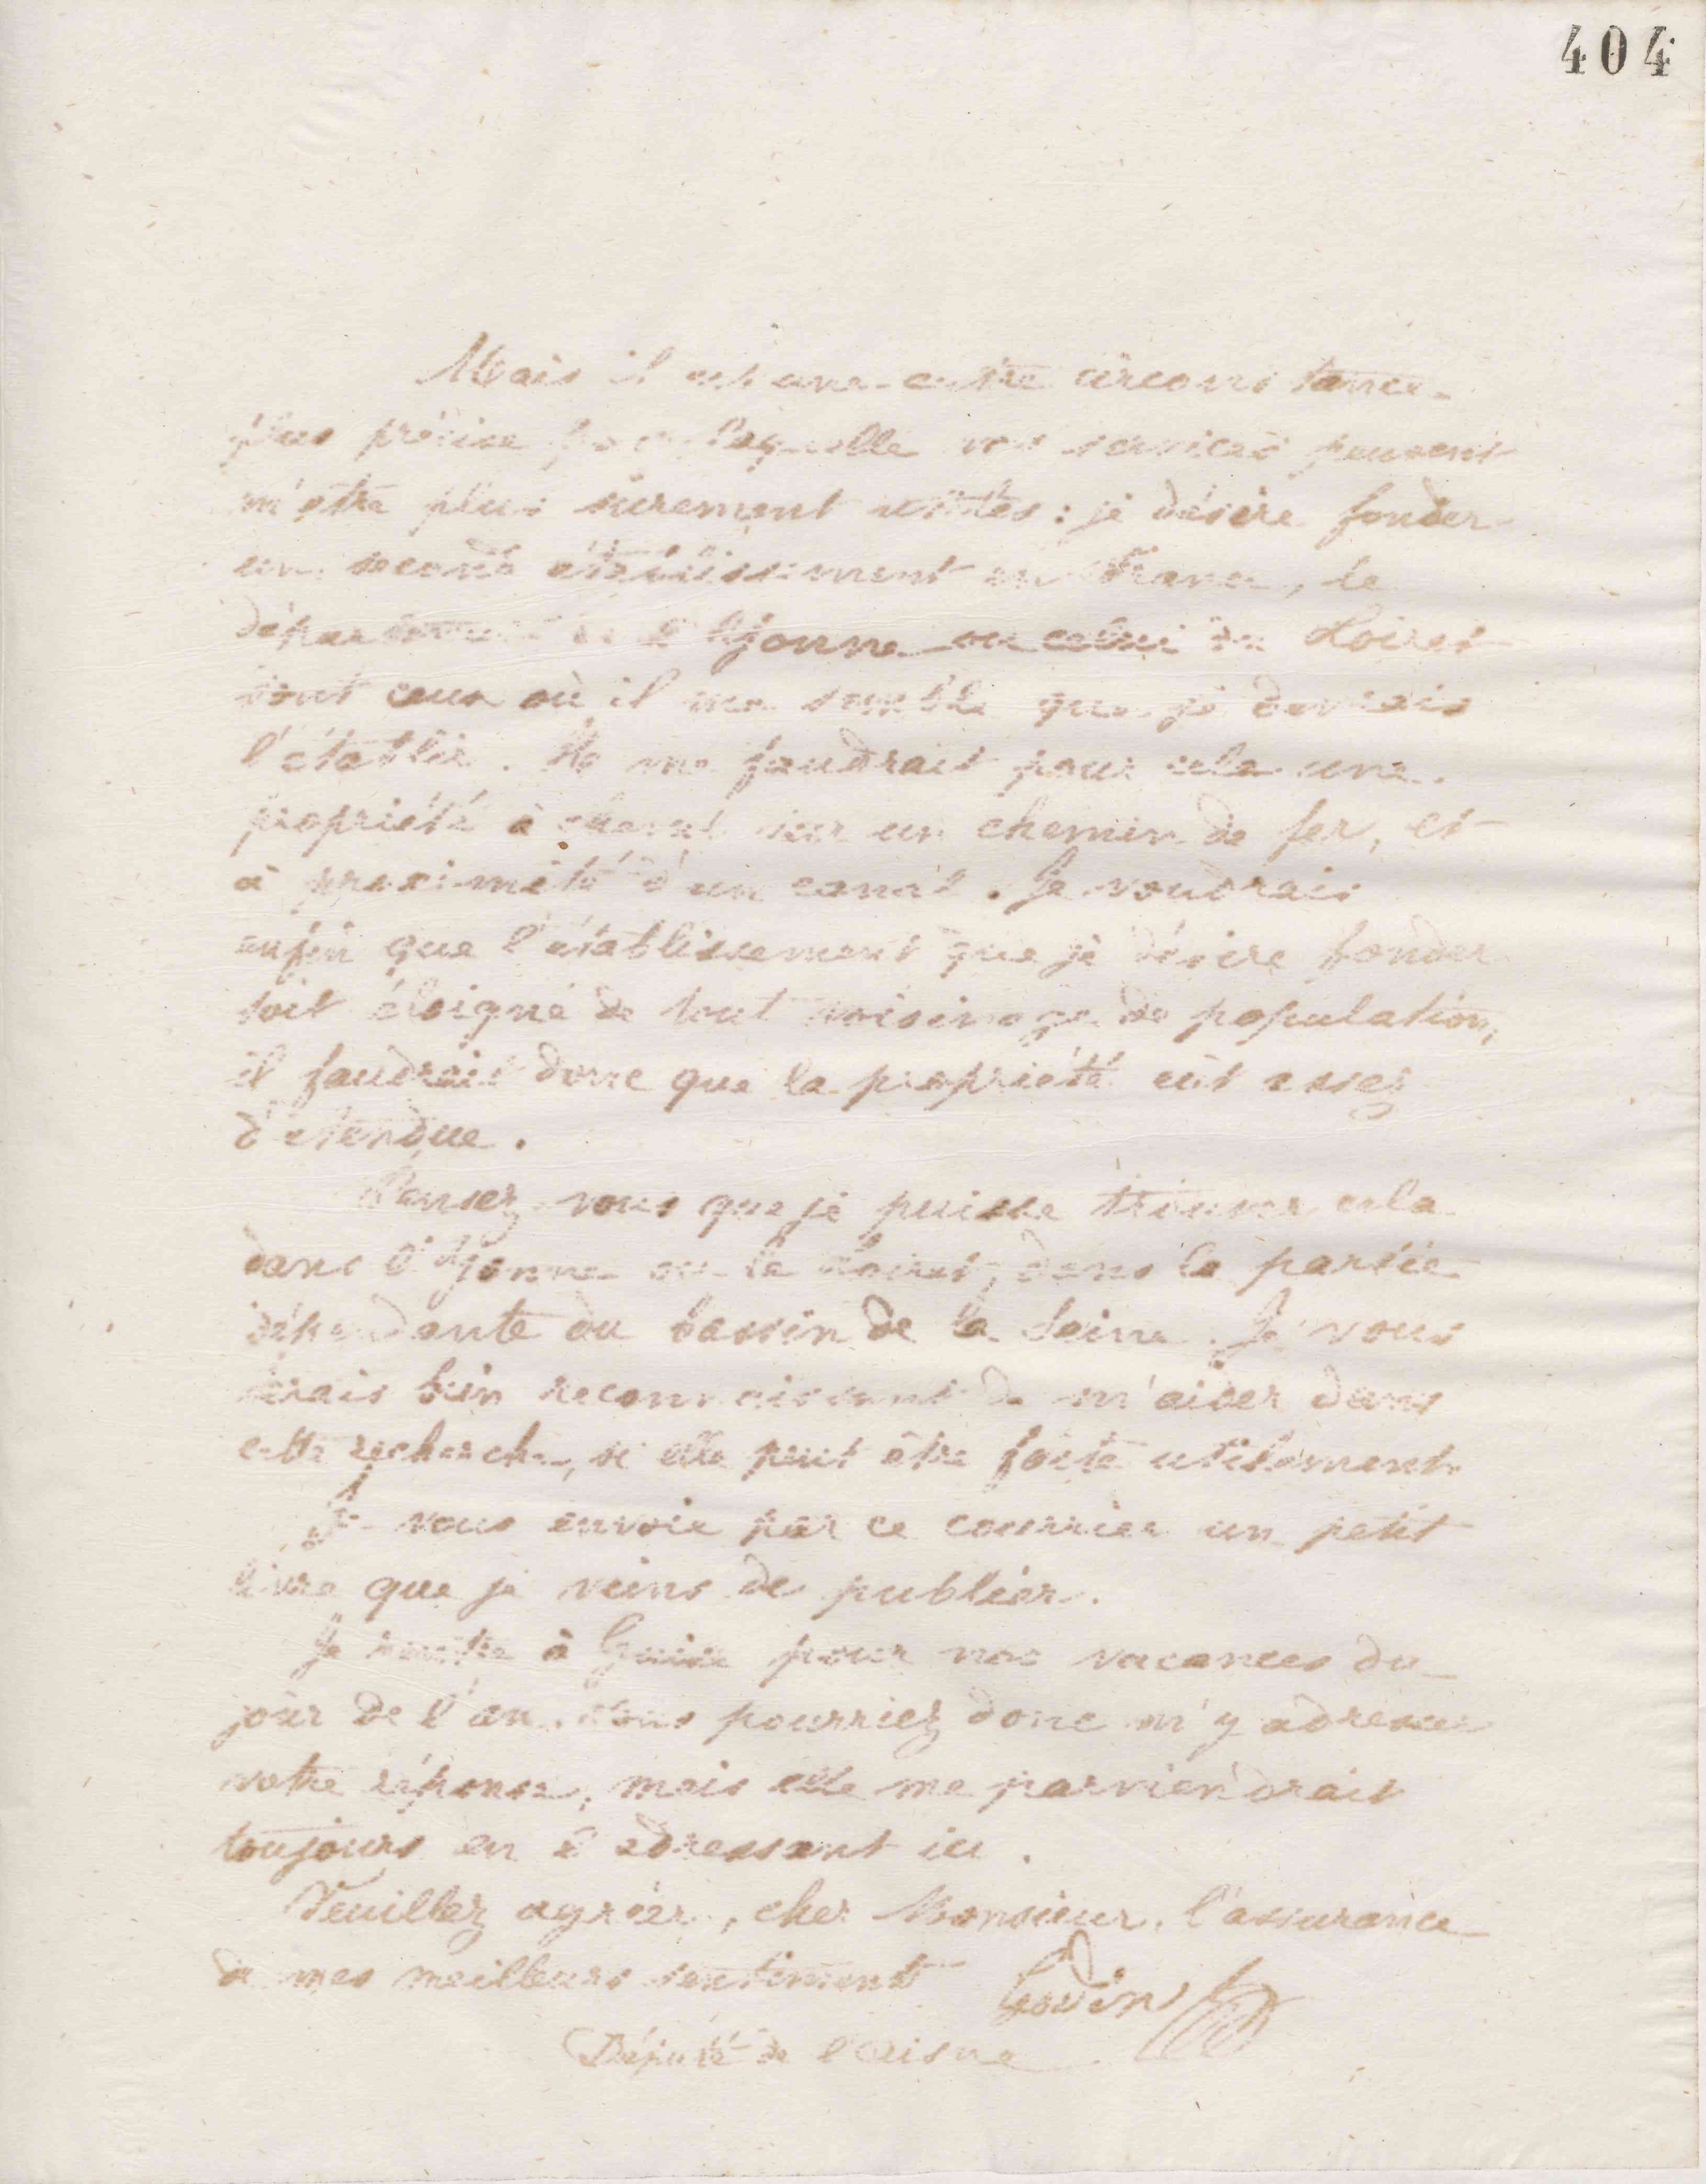 404
Mais il est une autre circonstance
plus précise pour laquelle vos services peuvent
m'être plus surement utiles : je désire fonder
un second établissement en France, le
département de l'Yonne ou celui du Loiret
sont ceux où il me semble que je devrais
l'établir. Il me faudrait pour cela une
propriété à cheval sur un chemin de fer, et
à proximité d'un canal. Je voudrais
enfin que l'établissement que je désire fonder
soit éloigné de tout voisinage de population,
il faudrait donc que la propriété eût assez
d'étendue.
Pensez-vous que je puisse trouver cela
dans l'Yonne ou le Loiret, dans la partie
dépendante du bassin de la Seine. Je vous
serais bien reconnaissant de m'aider dans
cette recherche, si elle peut être faite utilement.
Je vous envoie par ce courrier un petit
livre que je viens de publier.
Je rentre à Guise pour nos vacances du
jour de l'an. Vous pourriez donc m'y adresser
votre réponse, mais elle me parviendrait
toujours en l'adressant ici.
Veuillez agréer, cher Monsieur, l'assurance
de mes meilleurs sentiments
Godin
Député de l'Aisne